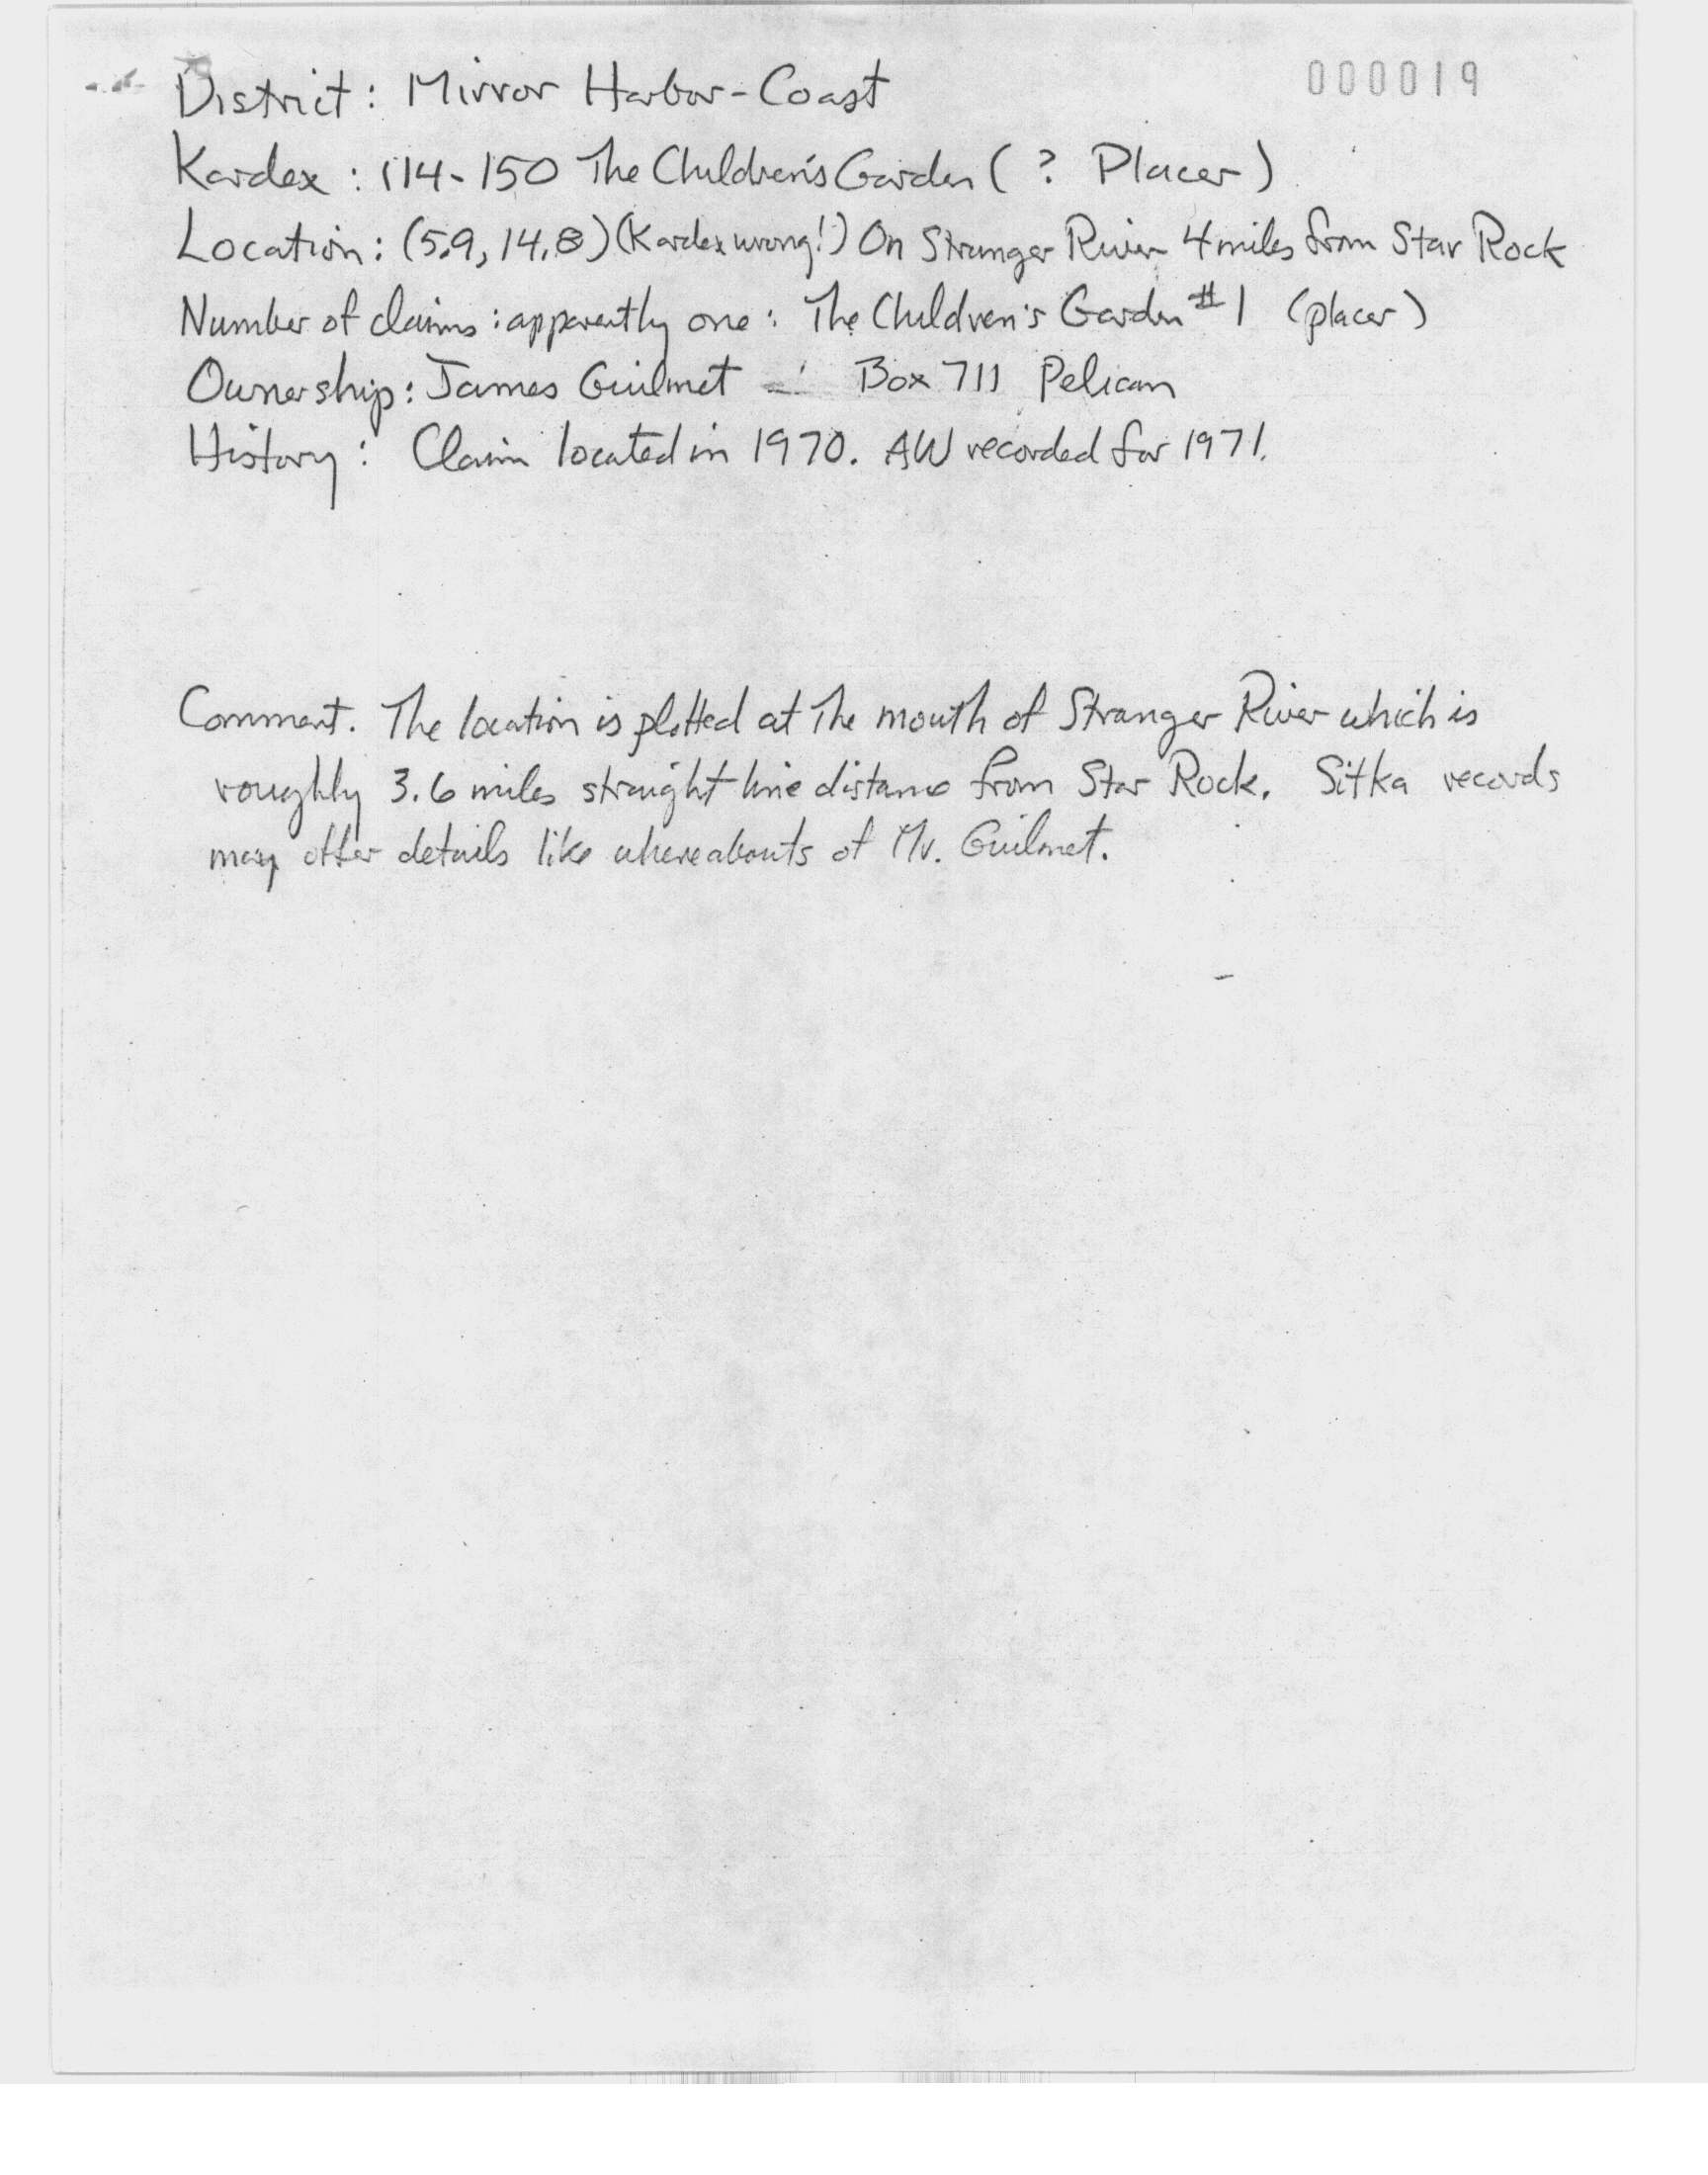 000019
District: Mirror Harbor-Coast
Kardex: 114-150 The Children's Garden (? Placer)
Location: (5.9, 14.8) (Kardex wrong!) On Stranger River 4 miles from Star Rock
Number of claims: apparently one: The Children's Garden #1 (placer)
Ownership: James Guilmet Box 711 Pelican
History: Claim located in 1970. AW recorded for 1971.
Comment. The location is plotted at the mouth of Stranger River which is
roughly 3.6 miles straight line distance from Star Rock. Sitka records
may offer details like whereabouts of Mr. Guilmet.